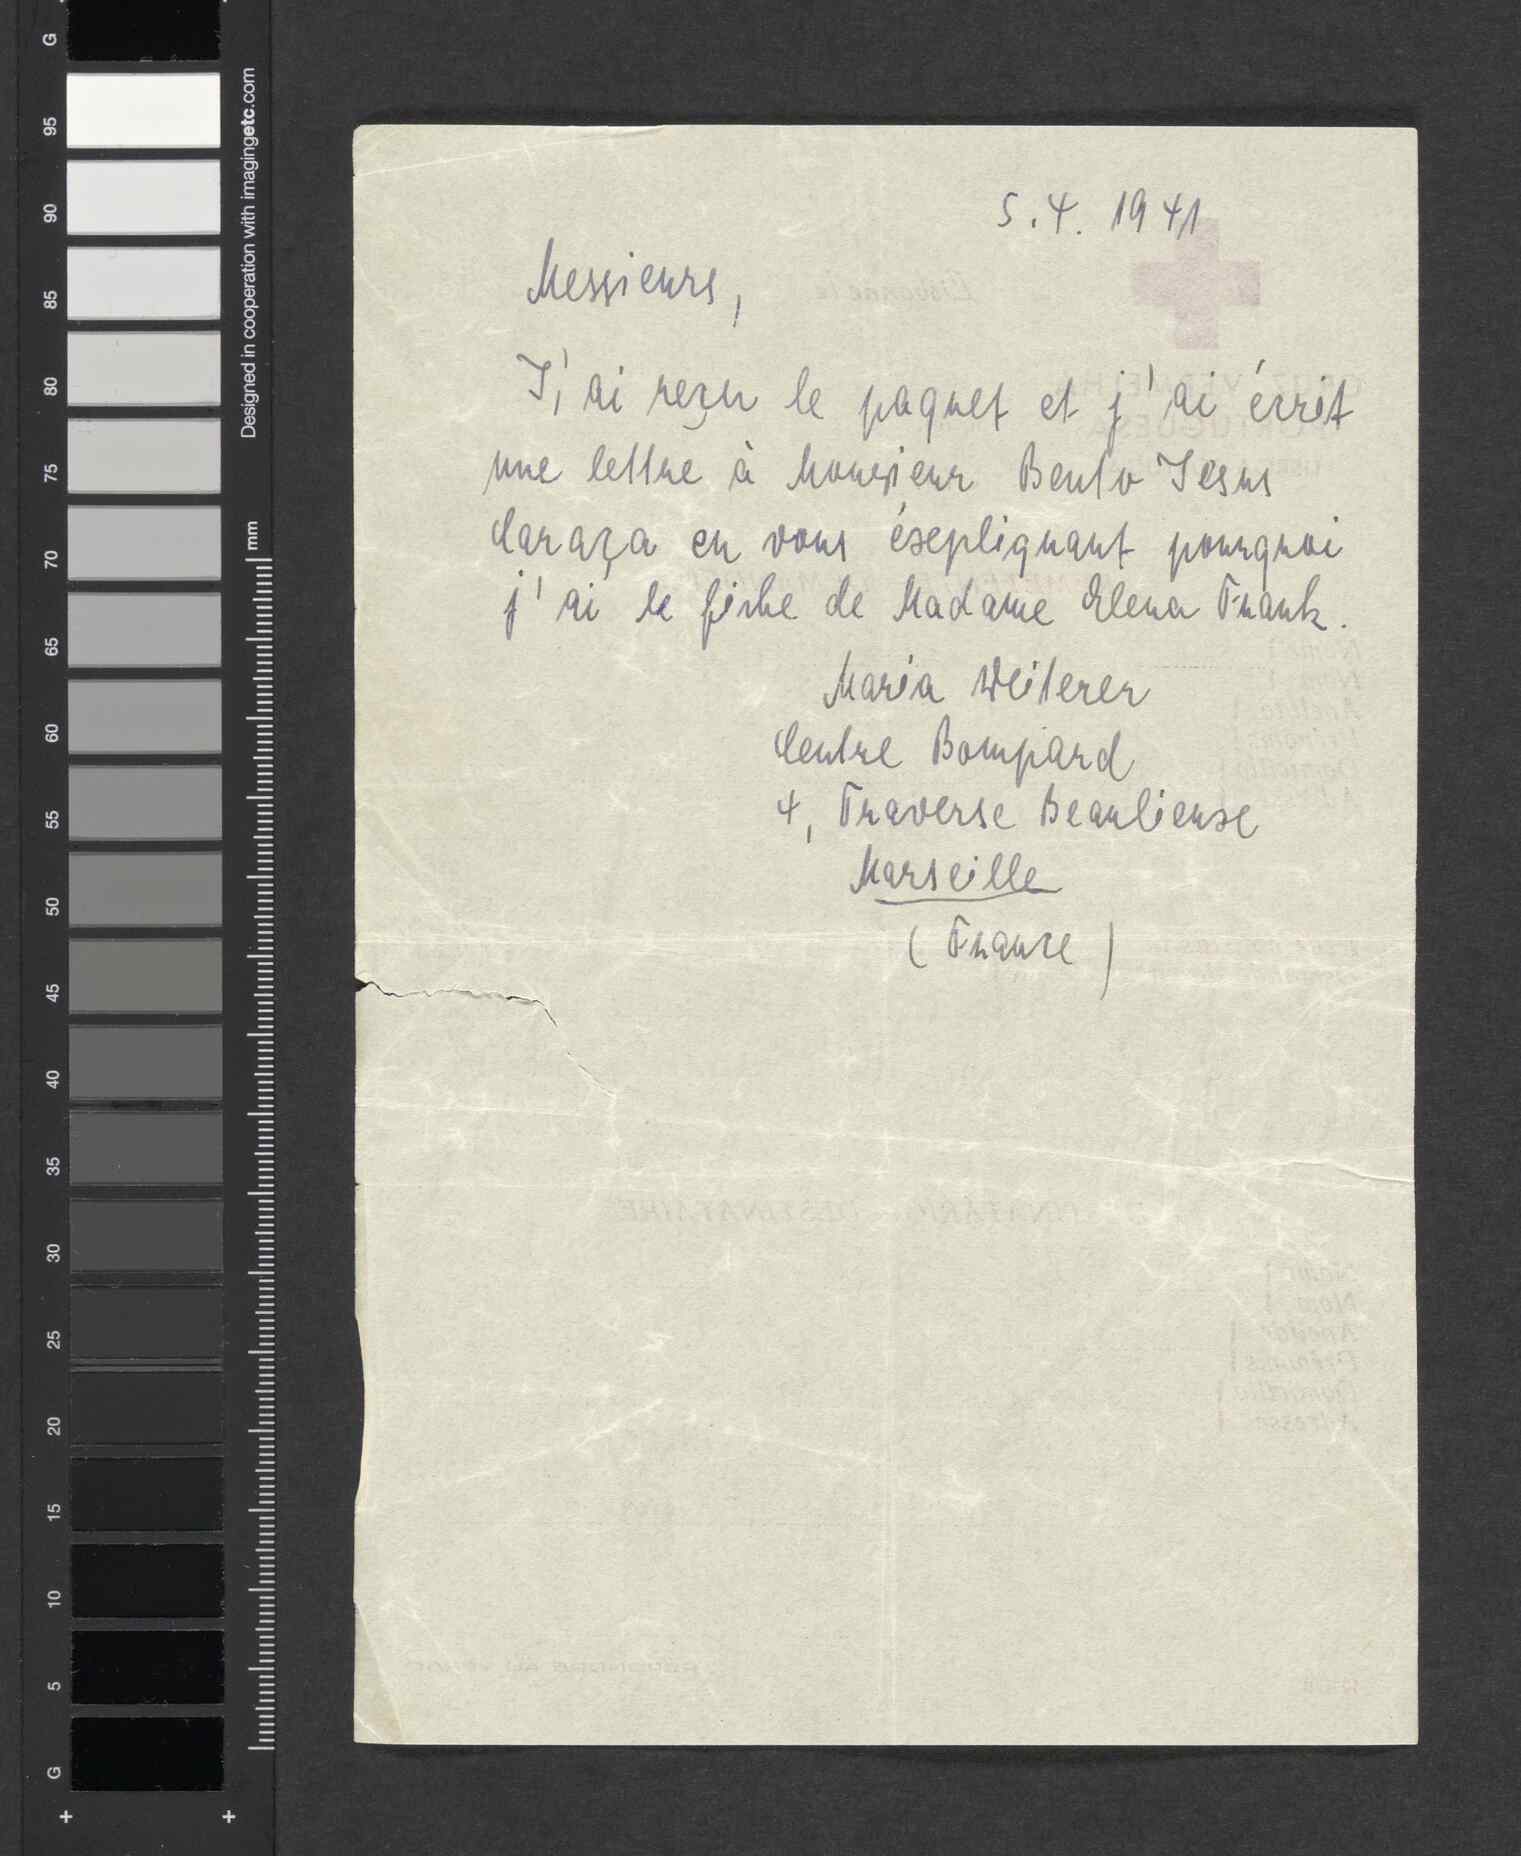 G
95
90
85
80
75
70
65
60
55
50
45
40
35
30
25
20
15
10
5
G
Designed in cooperation with imagingetc.com
mm
5.4. 1941
Messieurs,
J'ai reçu le paquet et j'ai écrit
une lettre à Monsieur Bento Jesus
Caraça en vous éxepliquant pourquoi
j'ai le fiche de Madame Elena Frank.
Maria Weiterer
Centre Bompard
4, Traverse Beaulieuxe
Marseille
(France)
DESTINATAIRE
Nome
Nom
Prénoms
Adresse